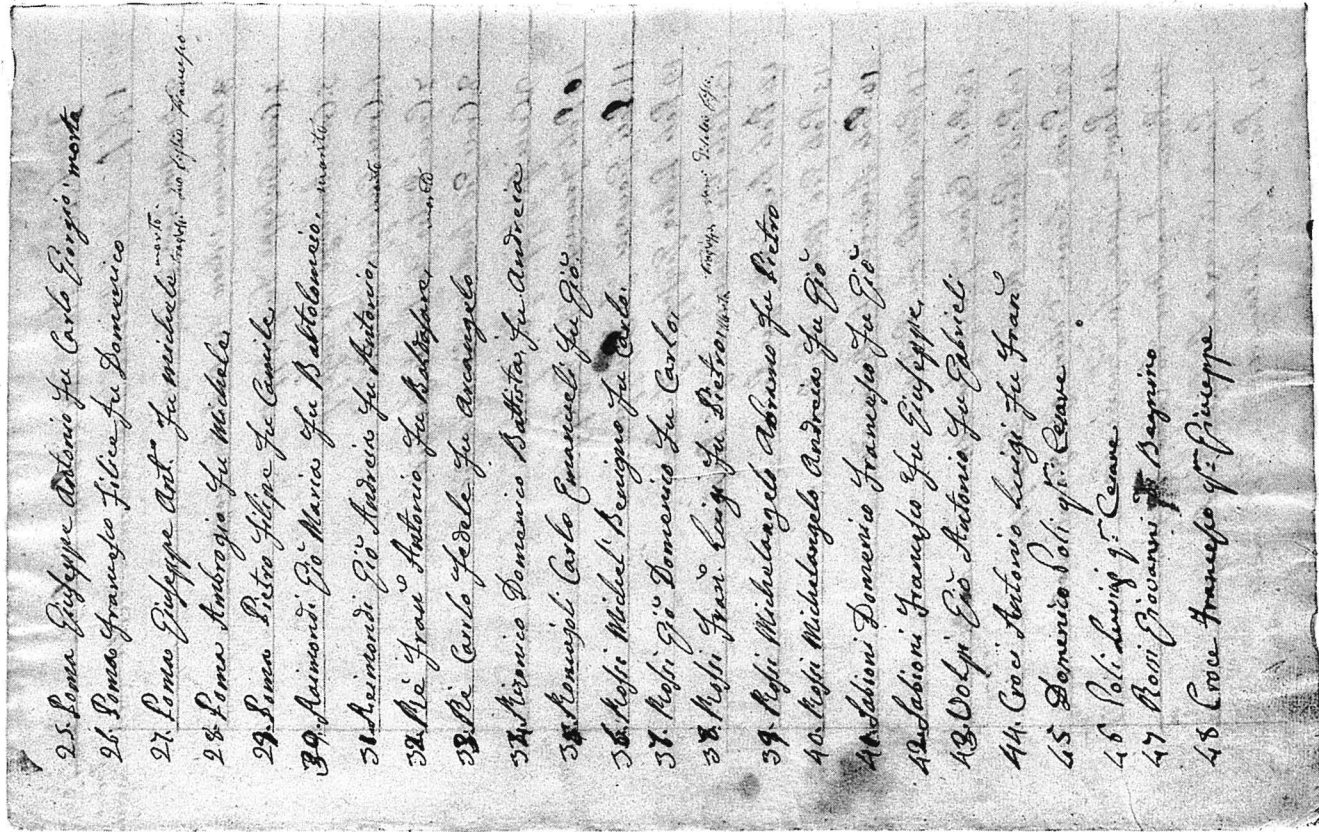 25. Poma Giuseppe Antonio fu Carlo Giorgio morto
26. Poma Francesco Filice fu Domenico
27. Poma Giuseppe Ant.º fu Michele morto. suo figlio Francesco
28. Poma Ambrogio fu Michele
29. Poma Pietro Filipe fu Camile
30. Raimondi Giõ Maria fu Bartolomeio. morto
31. Reimondi Giõ Andreia fu Antonio, morto
32. Rè Frañ Antonio fu Baldasare, morto
33. Rè Carlo Fedele fu Arcangelo
34. Rironico Domenico Battista, fu Andreia
35. Romejoli Carlo Emanueli fu Giõ.
36. Rossi Michel' Benigno fu Carlo.
37. Rossi Giõ Domenico fu Carlo.
38. Rossi Frañ. Luigi fu Pietro, morto
39. Rossi Michelangelo Adomeno fu Pietro
40. Rossi Michelangelo Andreia fu Giõ
41. Sabioni Domenico Francesco fu Giõ
42. Sabioni Francesco fu Giuseppe,
43. Volpi Giõ Antonio fu Gabrieli
44. Croci Antonio Luigi fu Frañ
45 Domenico Poli q.m Cesare
46 Poli Luigi q.m Cesare
47 Rossi Giovanni Begnino
48 Croce Francesco q.m Giuseppe